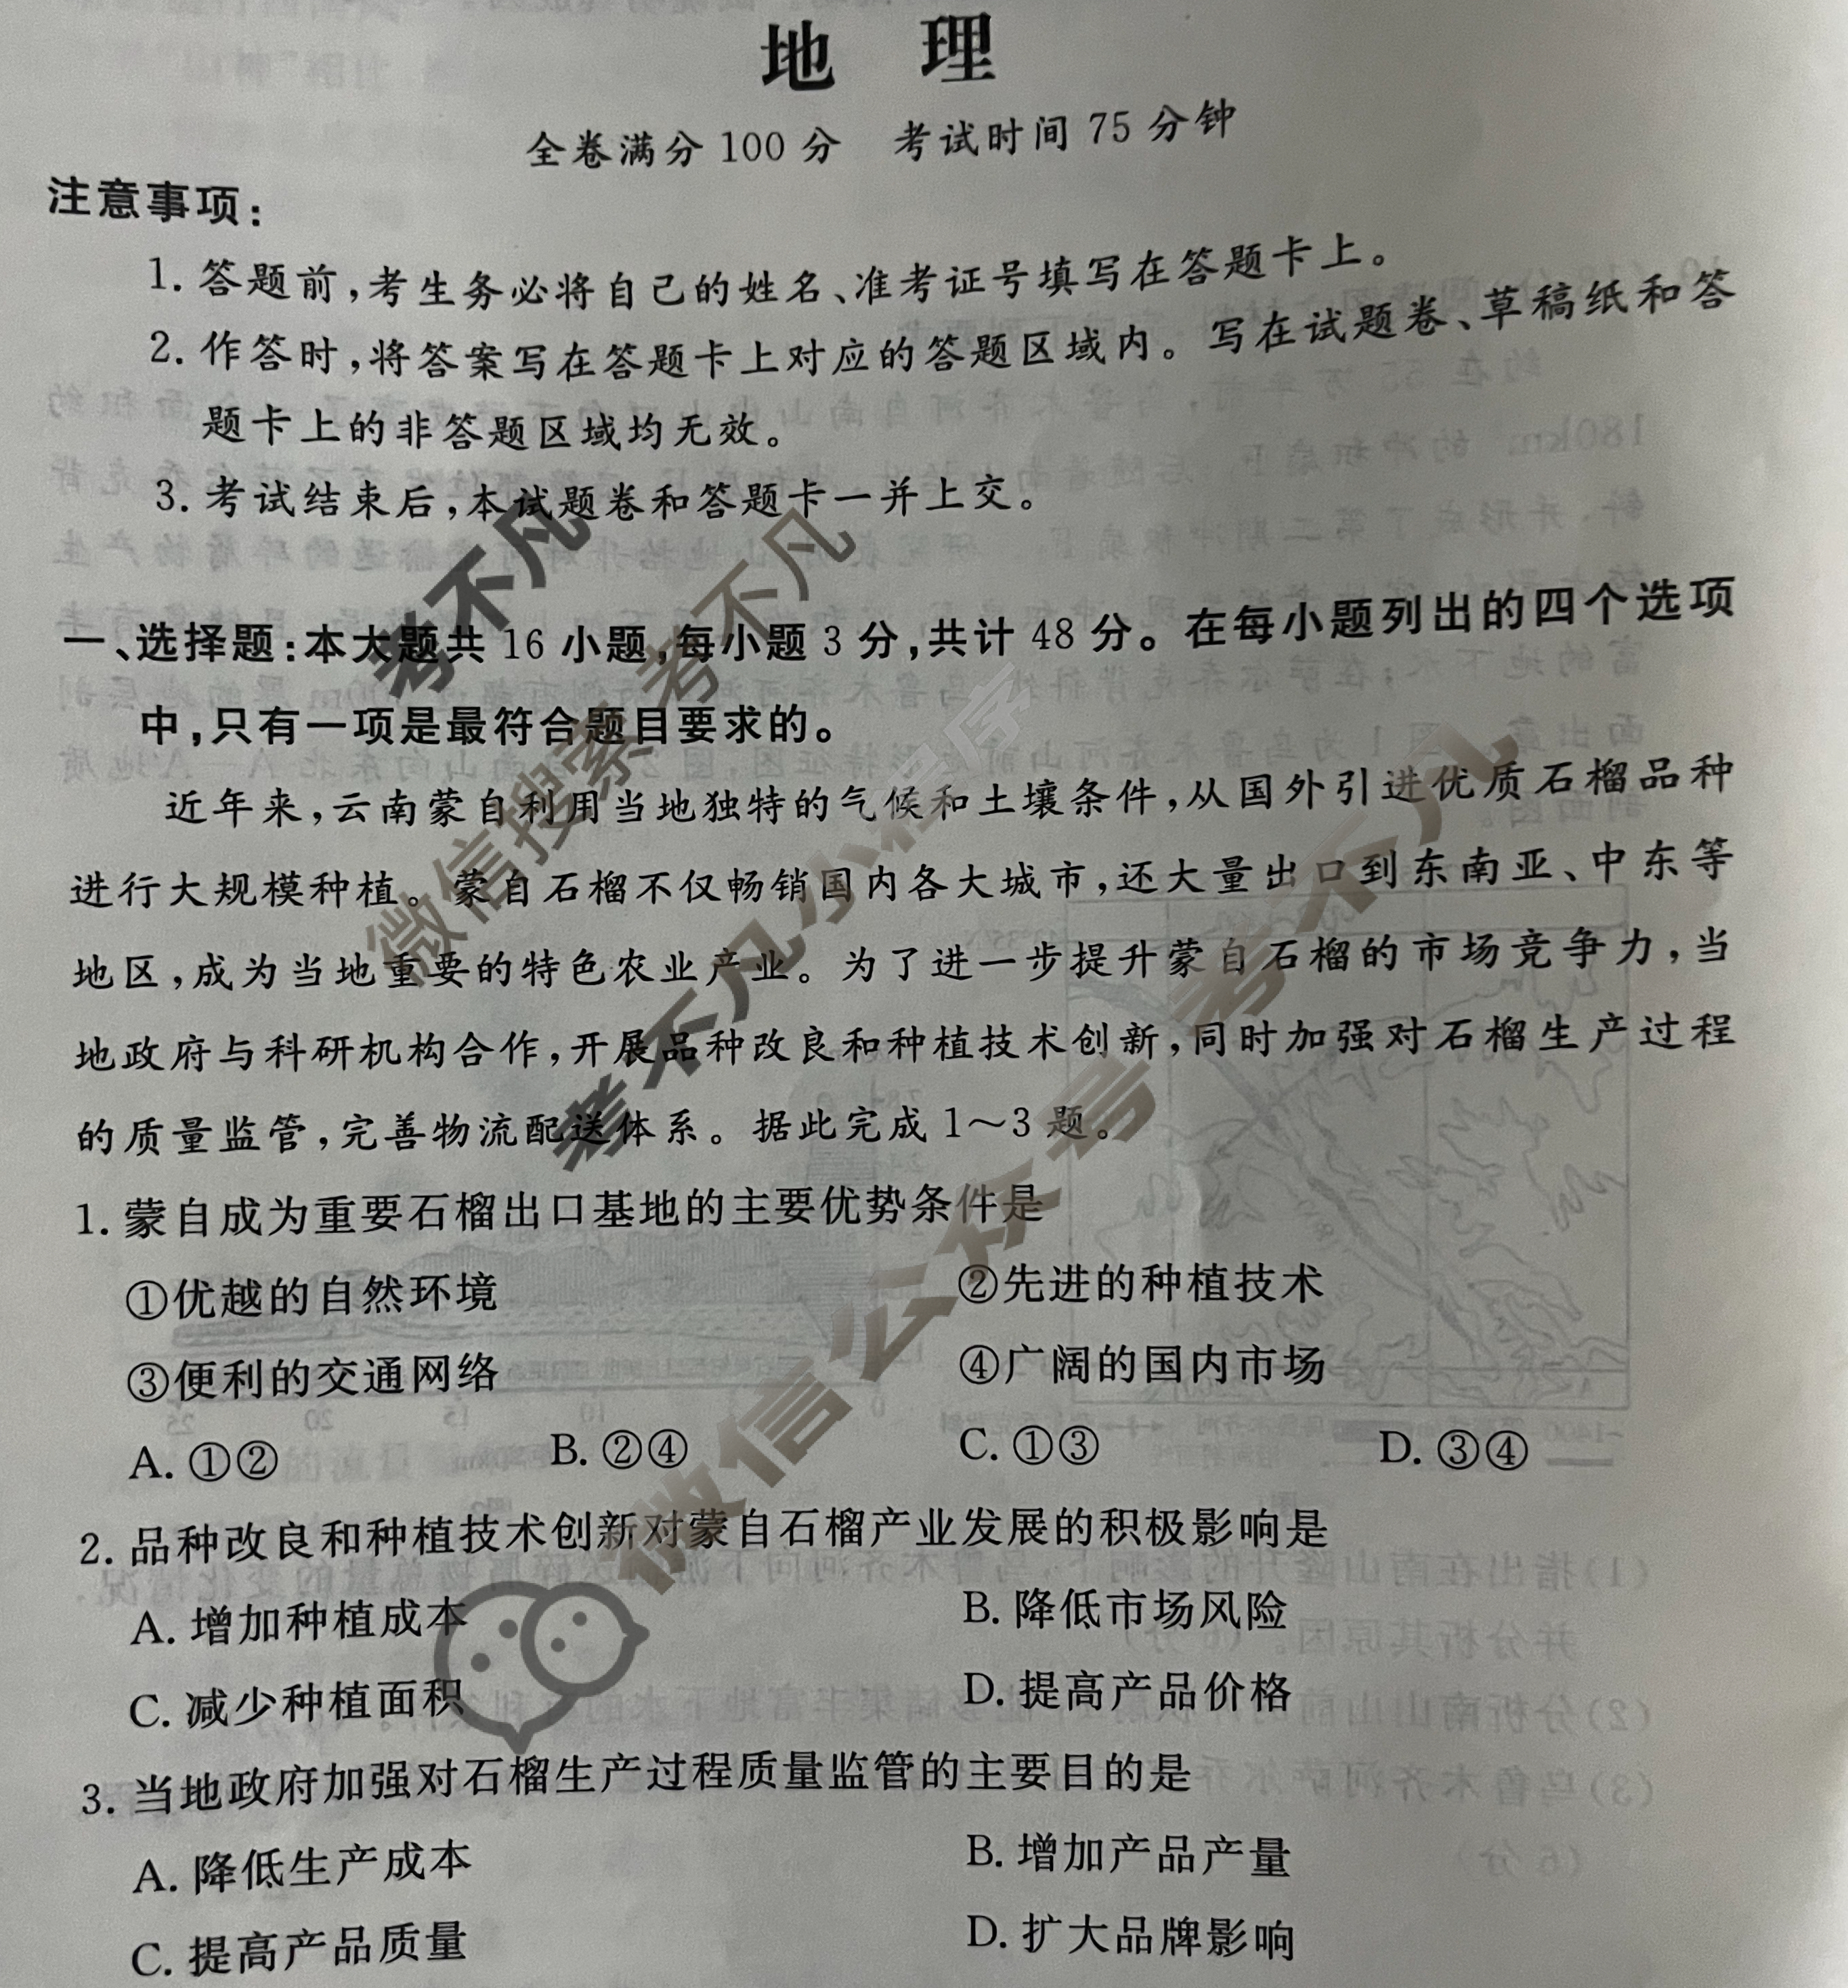 地 理
全卷满分 100 分 考试时间 75 分钟
注意事项：
1. 答题前，考生务必将自己的姓名、准考证号填写在答题卡上。
2. 作答时，将答案写在答题卡上对应的答题区域内。写在试题卷、草稿纸和答
题卡上的非答题区域均无效。
3. 考试结束后，本试题卷和答题卡一并上交。
一、选择题：本大题共 16 小题，每小题 3 分，共计 48 分。在每小题列出的四个选项
中，只有一项是最符合题目要求的。
近年来，云南蒙自利用当地独特的气候和土壤条件，从国外引进优质石榴品种
进行大规模种植。蒙自石榴不仅畅销国内各大城市，还大量出口到东南亚、中东等
地区，成为当地重要的特色农业产业。为了进一步提升蒙自石榴的市场竞争力，当
地政府与科研机构合作，开展品种改良和种植技术创新，同时加强对石榴生产过程
的质量监管，完善物流配送体系。据此完成 1～3 题。
1. 蒙自成为重要石榴出口基地的主要优势条件是
①优越的自然环境 ②先进的种植技术
③便利的交通网络 ④广阔的国内市场
A. ①② B. ②④ C. ①③ D. ③④
2. 品种改良和种植技术创新对蒙自石榴产业发展的积极影响是
A. 增加种植成本 B. 降低市场风险
C. 减少种植面积 D. 提高产品价格
3. 当地政府加强对石榴生产过程质量监管的主要目的是
A. 降低生产成本 B. 增加产品产量
C. 提高产品质量 D. 扩大品牌影响
考不凡
微信搜索 考不凡
考不凡小程序
微信公众号 考不凡